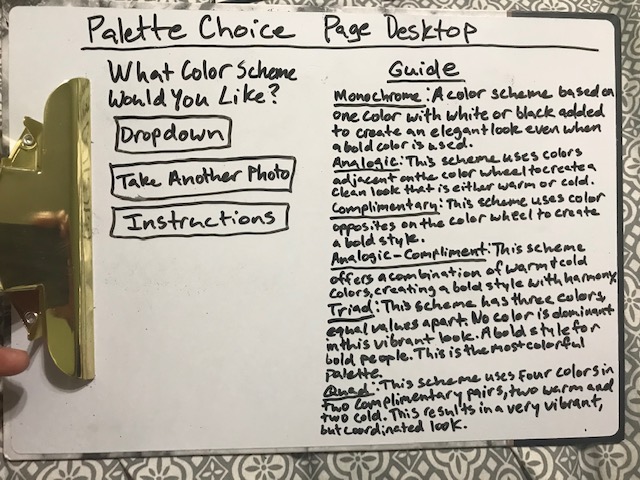 Palette Choice Page Desktop
What Color Scheme
Would You Like?
Dropdown
Take Another Photo
Instructions
Guide
Monochrome: A color scheme based on
one color with white or black added
to create an elegant look even when
a bold color is used.
Analogic: This scheme uses colors
adjacent on the color wheel to create a
clean look that is either warm or cold.
Complimentary: This scheme uses color
opposites on the color wheel to create
a bold style.
Analogic-Compliment: This scheme
offers a combination of warm + cold
colors, creating a bold style with harmony.
Triad: This scheme has three colors,
equal values apart. No color is dominant
in this vibrant look. A bold style for
bold people. This is the most colorful
palette.
Quad: This scheme uses four colors in
two complimentary pairs, two warm and
two cold. This results in a very vibrant,
but coordinated look.